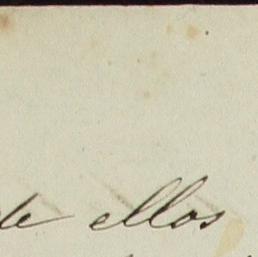 de ellos